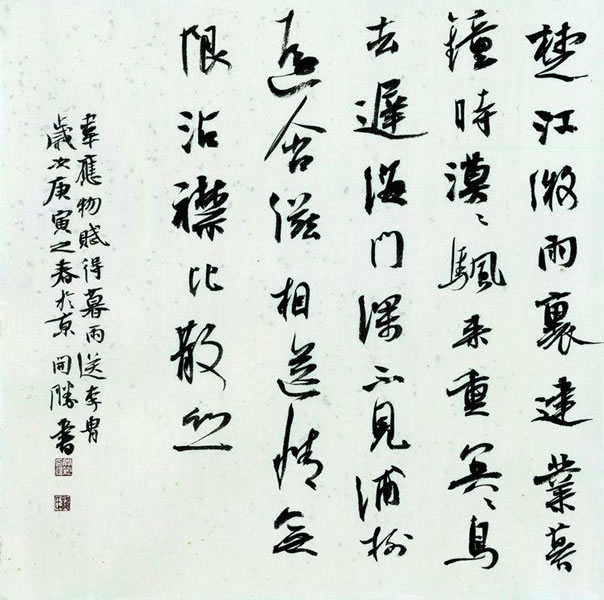 楚江微雨裏建業暮
鐘時漠〻颿来重冥〻鳥
去遲海門深不見浦樹
遠含滋相送情無
限沾襟比散丝
韋應物賦得暮雨送李胄
歲次庚寅之春於京 開勝書